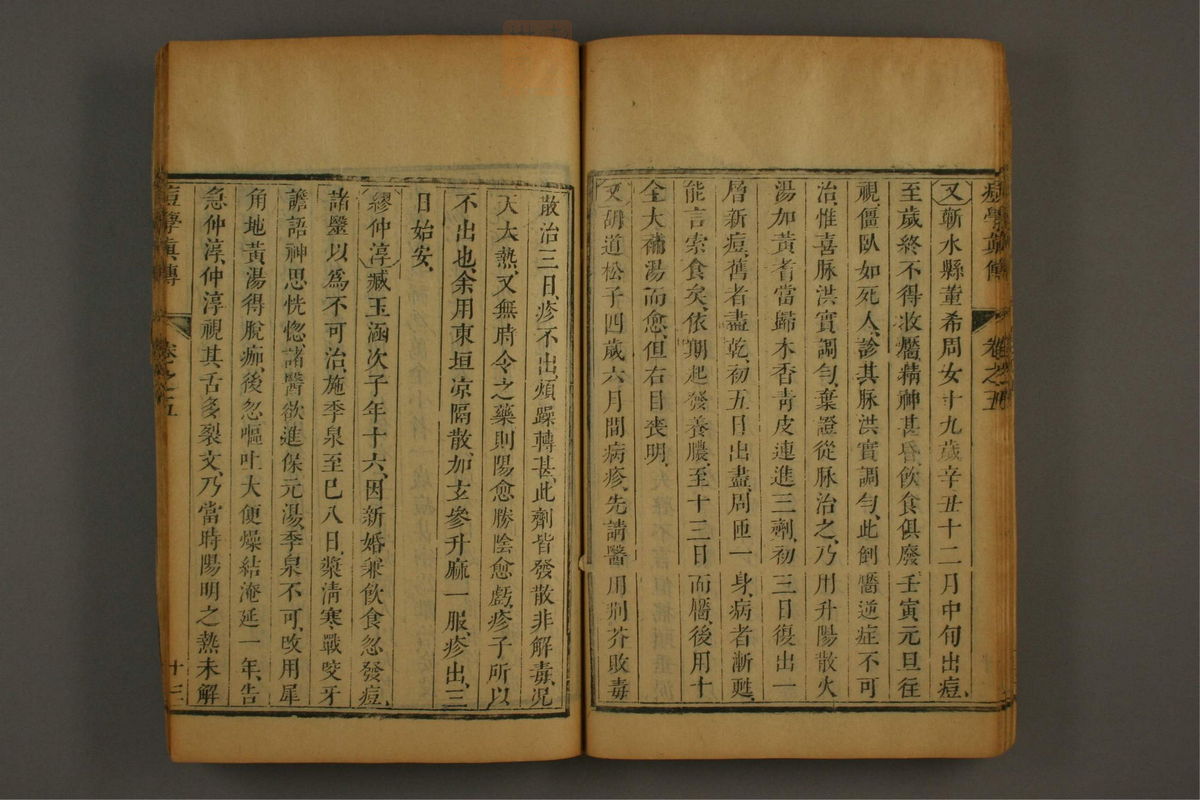 痘學眞傳 卷之五
又蘄水縣董希周女十九歲辛丑十二月中旬出痘、
至歲終不得收靨精神甚昏飲食俱廢壬寅元旦往
視、僵臥如死人、診其脉洪實調勻、此倒靨逆症不可
治、惟喜脉洪實調勻、棄證從脉治之、乃用升陽散火
湯加黃耆當歸木香靑皮連進三劑、初三日復出一
層新痘、舊者盡乾、初五日出盡、周匝一身、病者漸甦、
能言索食矣、依期起發養膿、至十三日而靨、後用十
全大補湯而愈、但右目喪明、
又胡道松子四歲六月間病疹、先請醫用荆芥敗毒
散治三日、疹不出煩躁轉甚、此劑皆發散非解毒、况
天大熱、又無時令之藥則陽愈勝陰愈虧、疹子所以
不出也、余用東垣凉隔散、加玄參升麻一服、疹出、三
日始安、
繆仲淳臧玉涵次子年十六、因新婚兼飲食忽發痘、
諸醫以爲不可治、施季泉至巳八日、漿淸寒戰咬牙
譫語神思恍惚、諸醫欲進保元湯、季泉不可、改用犀
角地黃湯得脫痂、後忽嘔吐大便燥結淹延一年、告
急仲淳、仲淳視其舌多裂文、乃當時陽明之熱未解
痘學眞傳 卷之五 十三